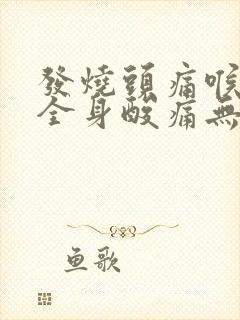 發燒頭痛喉
全身酸痛無
鱼歌